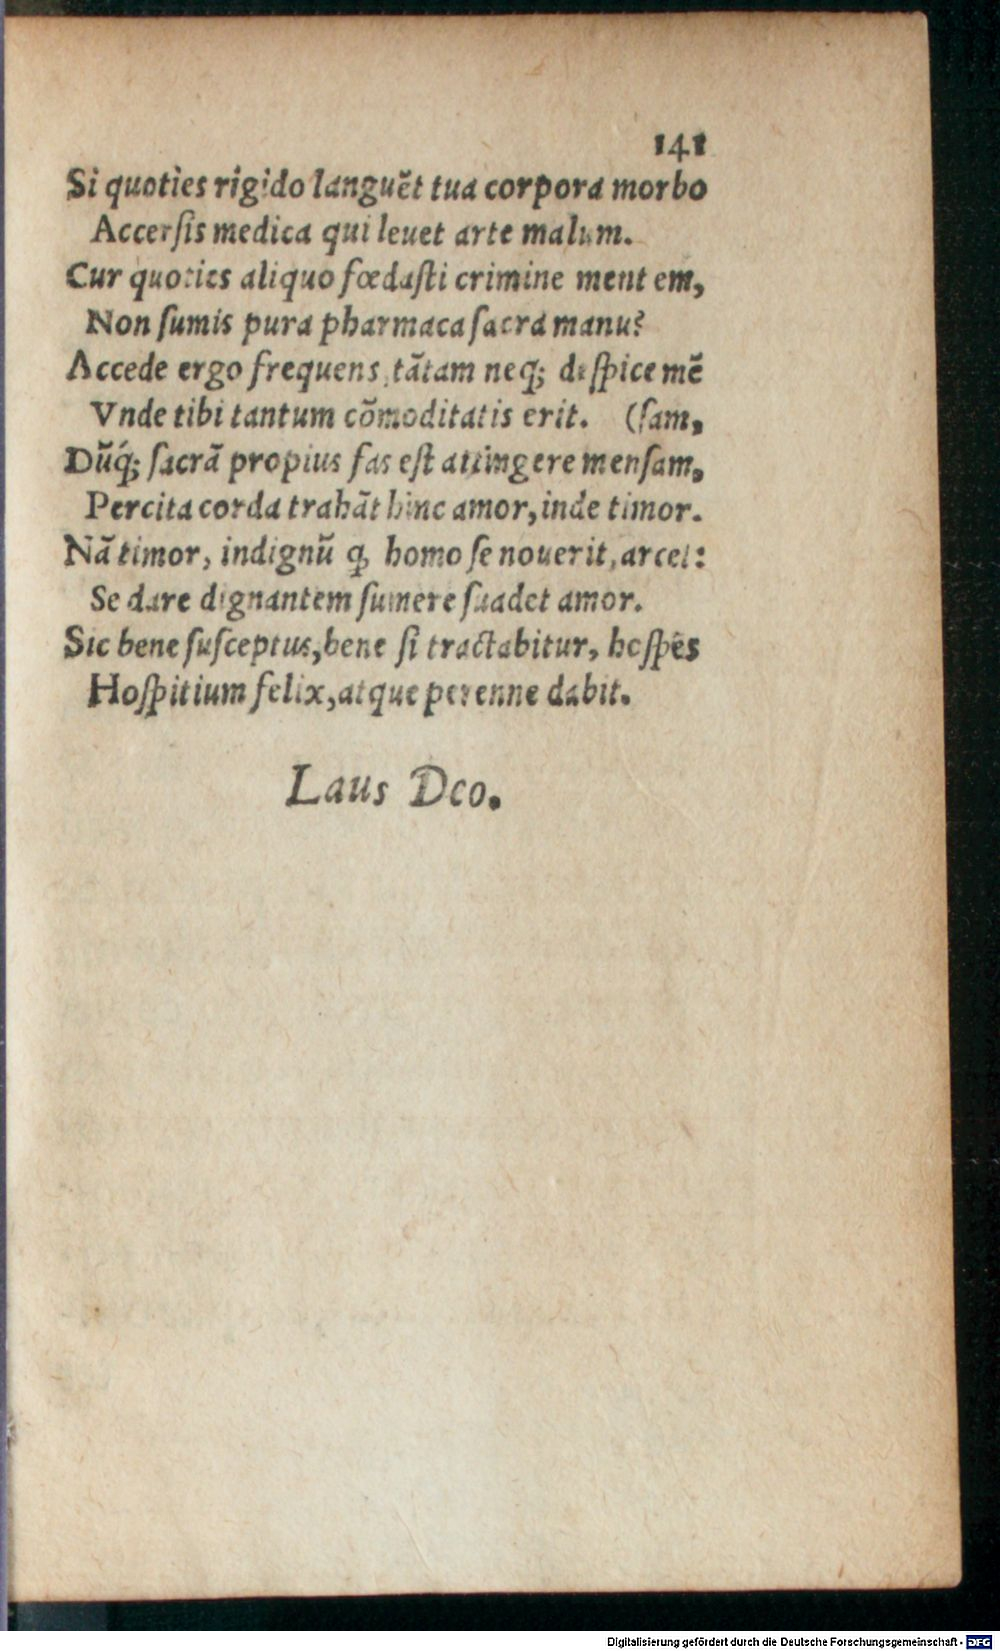 141
Si quoties rigido languẽt tua corpora morbo
Accersis medica qui leuet arte malum.
Cur quoties aliquo fœdasti crimine ment em,
Non sumis pura pharmaca sacra manu?
Accede ergo frequens, tãtam neq; despice mẽ
Vnde tibi tantum cõmoditatis erit. (sam,
Dũq́; sacrã propius fas est attingere mensam,
Percita corda trahãt hinc amor, inde timor.
Nã timor, indignũ q̃ homo se nouerit, arcet:
Se dare dignantem sumere suadet amor.
Sic bene susceptus, bene si tractabitur, hospes
Hospitium felix, atque perenne dabit.
Laus Deo.
Digitalisierung gefördert durch die Deutsche Forschungsgemeinschaft - DFG